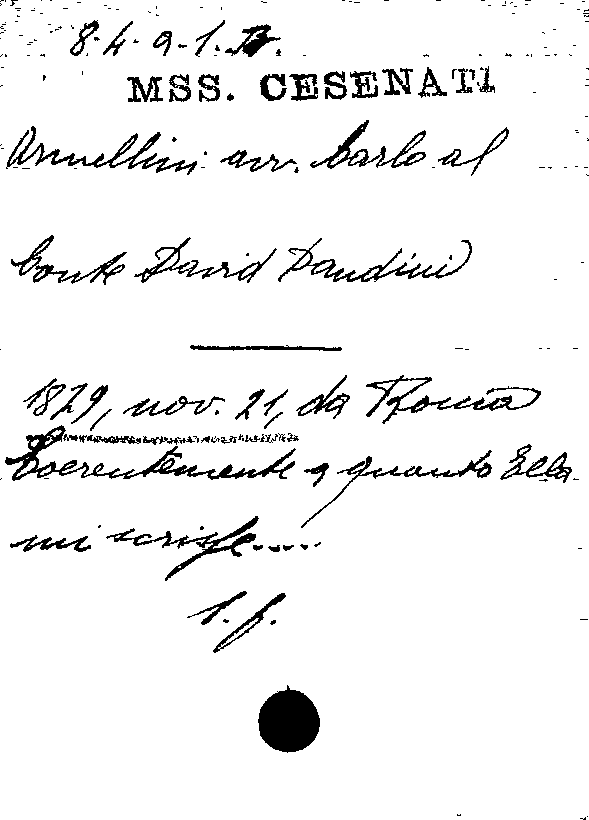 8-4-9-1. B.
MSS. CESENATI
Armellini avv. Carlo al
Conte David Dandini
1829, nov. 21, da Roma
Coerentemente a quanto Ella
mi scrisse.....
1. f.